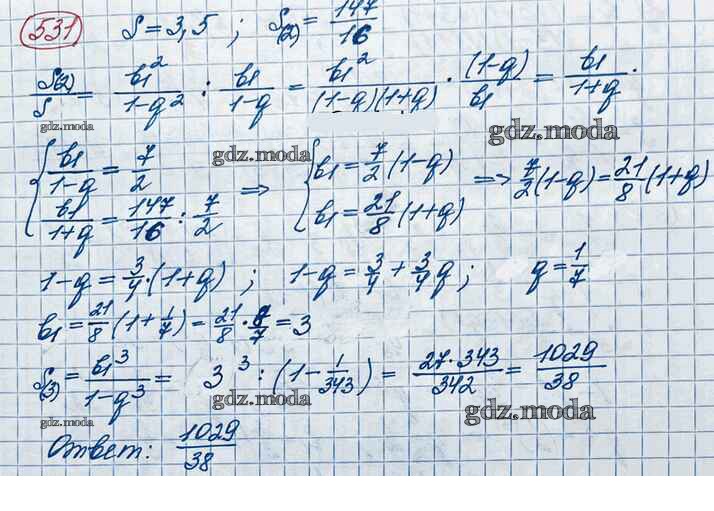 531 S = 3,5 ; S(2) = 147/16
S(2)/S = b1^2/(1-q^2) : b1/(1-q) = b1^2/((1-q)(1+q)) · (1-q)/b1 = b1/(1+q).
gdz.moda
gdz.moda
{ b1/(1-q) = 7/2 ⇒ { b1 = 7/2 (1-q) ⇒ 7/2 (1-q) = 21/8 (1+q)
gdz.moda
b1/(1+q) = 147/16 : 7/2 b1 = 21/8 (1+q)
1-q = 3/4 · (1+q) ; 1-q = 3/4 + 3/4 q ; q = 1/7
b1 = 21/8 (1 + 1/7) = 21/8 · 8/7 = 3
S(3) = b1^3/(1-q^3) = 3^3 : (1 - 1/343) = 27·343/342 = 1029/38
gdz.moda
gdz.moda
gdz.moda
Ответ: 1029/38